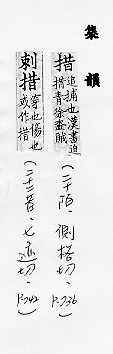 集韻
措 追捕也漢書迫
措青徐盗賊
(二十陌、側格切、P.736)
刺措 穿也傷也
或作措
(二十二昔、七迹切、P.742)